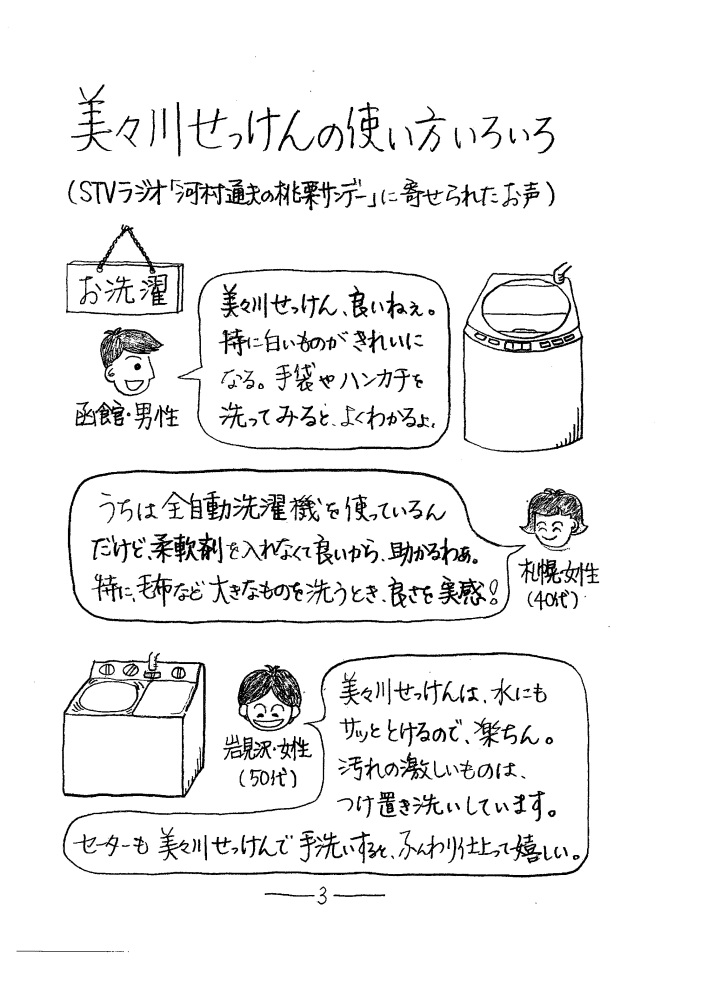 美々川せっけんの使い方いろいろ
(STVラジオ「河村通夫の桃栗サンデー」に寄せられたお声)
お洗濯
美々川せっけん、良いねぇ。
特に白いものがきれいに
なる。手袋やハンカチを
洗ってみると、よくわかるよ。
函館・男性
うちは全自動洗濯機を使っているん
だけど、柔軟剤を入れなくて良いから、助かるわぁ。
特に、毛布など大きなものを洗うとき、良さを実感!
札幌・女性
(40代)
岩見沢・女性
(50代)
美々川せっけんは、水にも
サッととけるので、楽ちん。
汚れの激しいものは、
つけ置き洗いしています。
セーターも美々川せっけんで手洗いすると、ふんわり仕上って嬉しい。
3